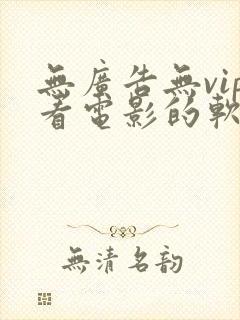 無廣告無vip
看電影的軟
無清名韵